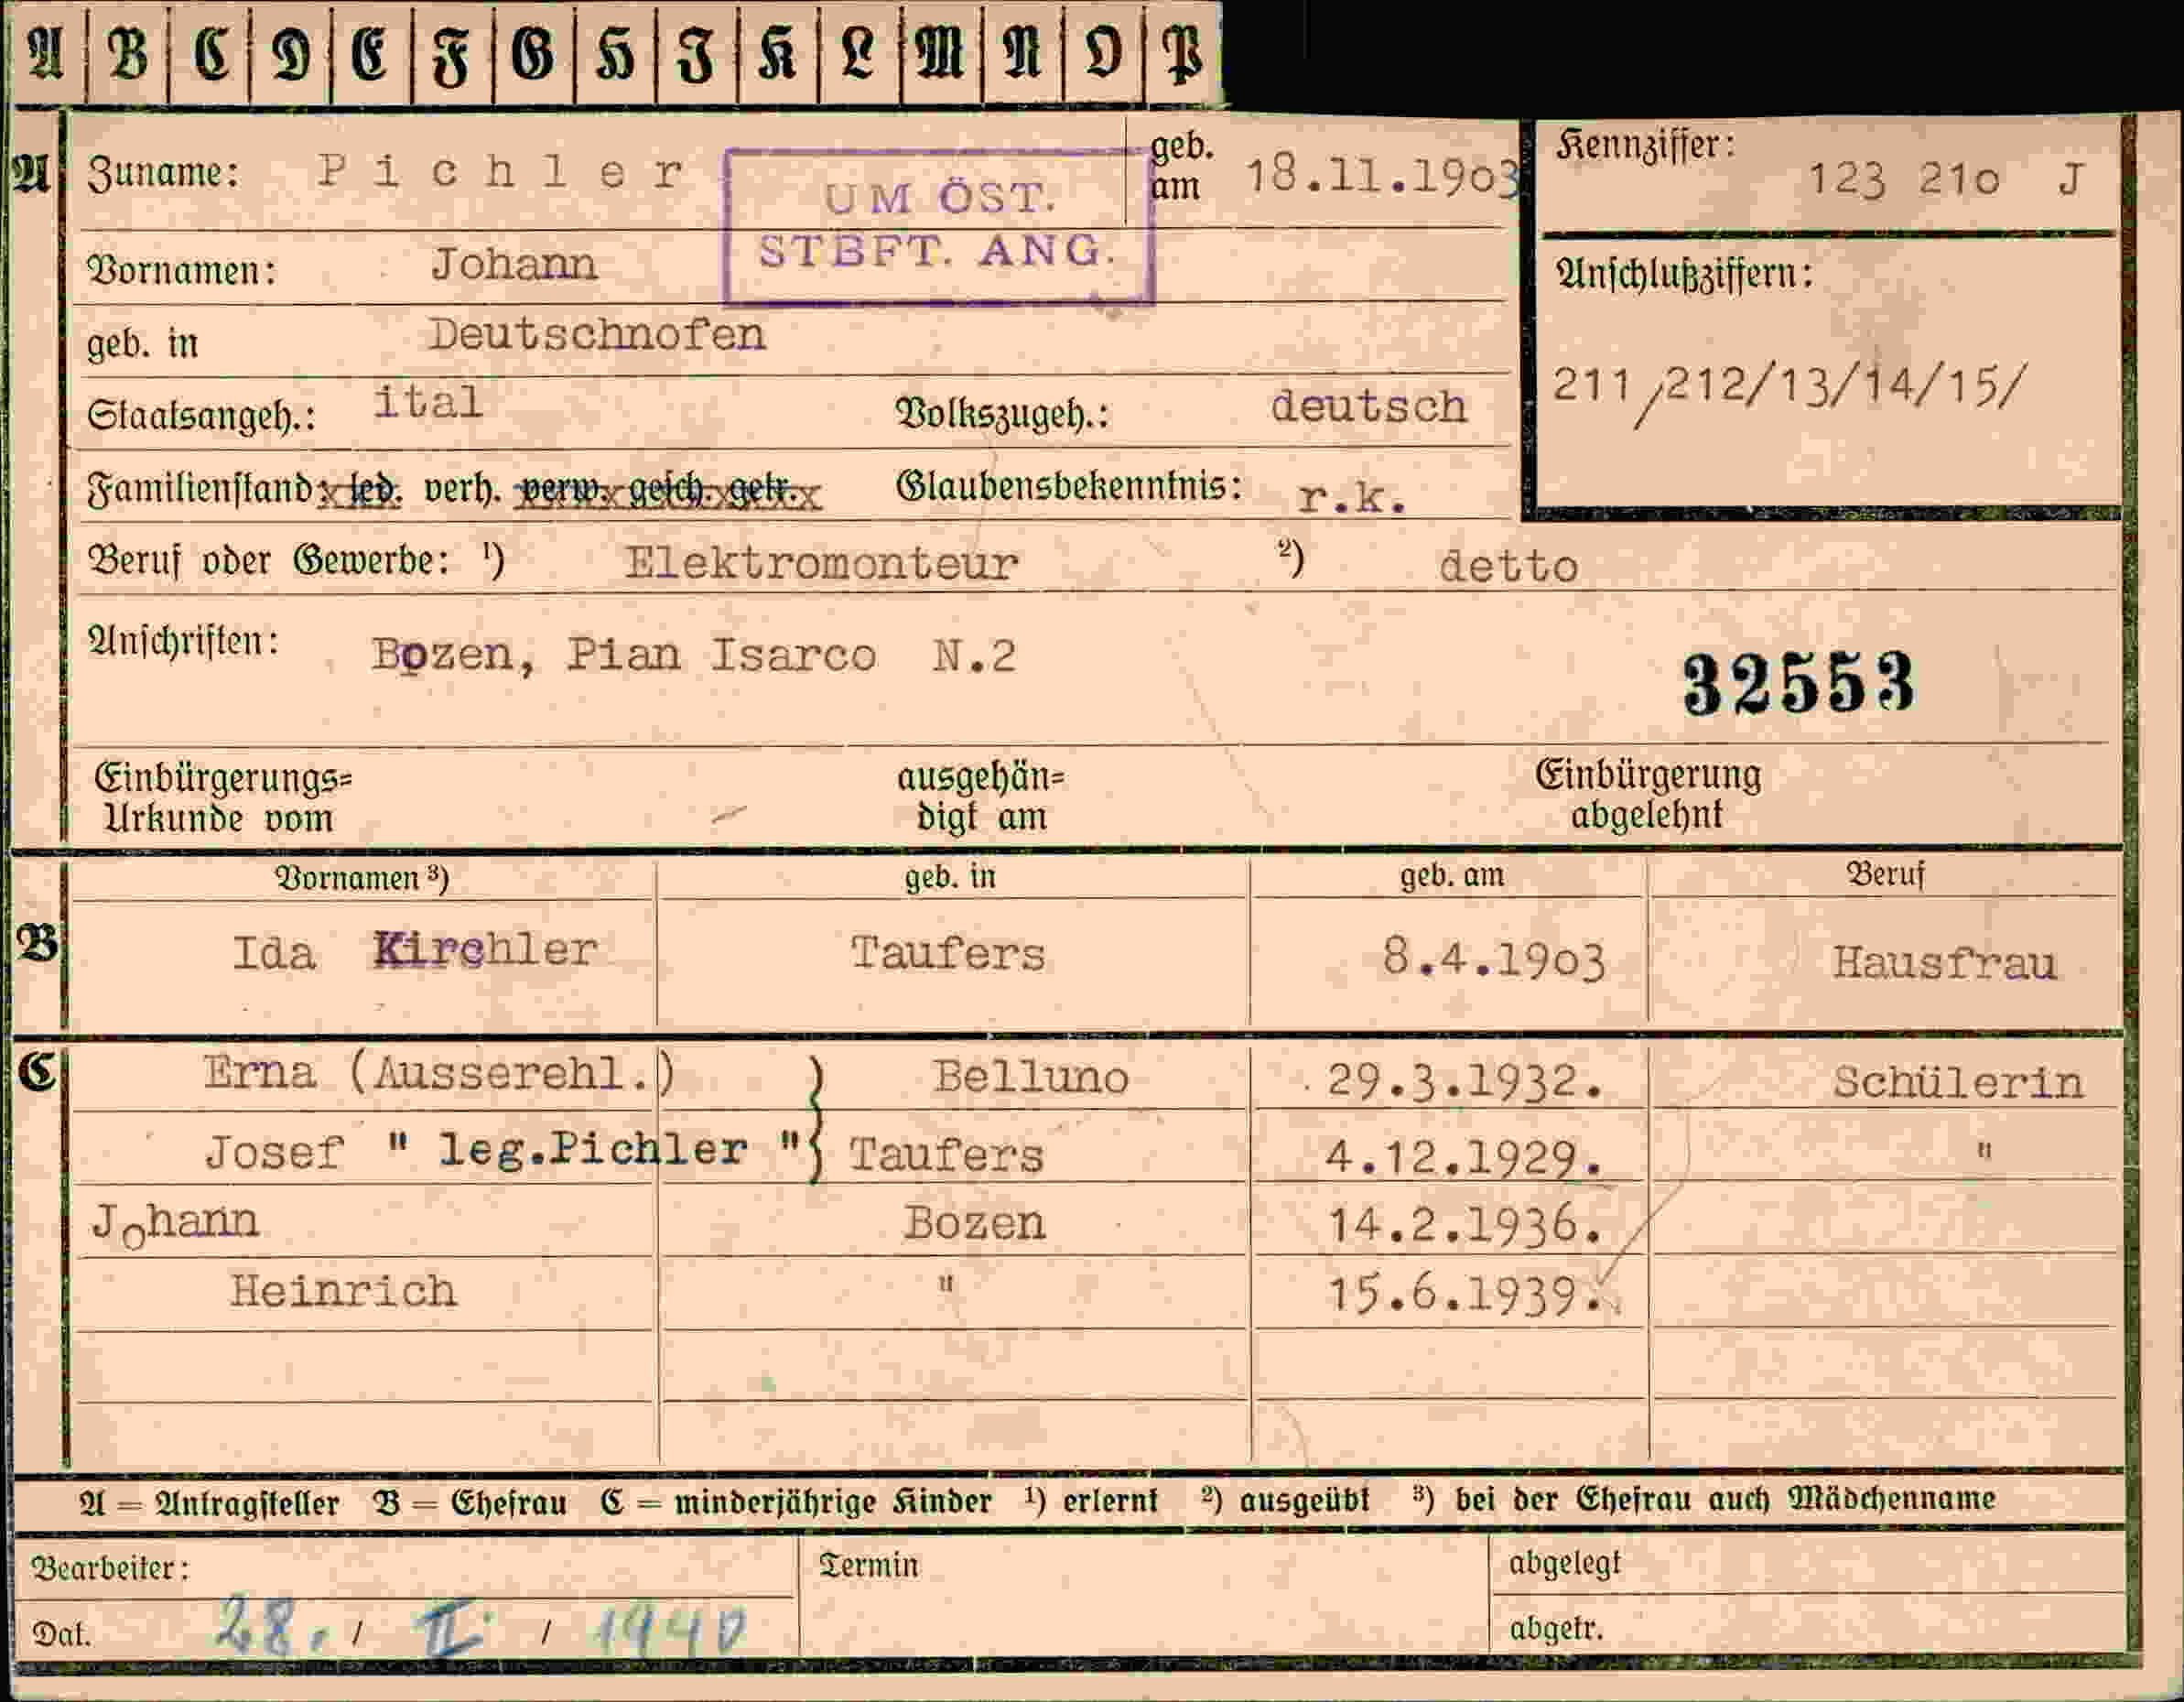 A B C D E F G H I K L M N O P
A Zuname: Pichler geb. am 18.11.19o3 Kennziffer: 123 21o J
UM ÖST.
STBFT. ANG.
Vornamen: Johann Anschlußziffern:
geb. in Deutschnofen
Staatsangeh.: ital Volkszugeh.: deutsch 211/212/13/14/15/
Familienstand: led. verh. verw. gesch. getr. Glaubensbekenntnis: r.k.
Beruf oder Gewerbe: ¹) Elektromonteur ²) detto
Anschriften: Bozen, Pian Isarco N.2
32553
Einbürgerungs= ausgehän= Einbürgerung
Urkunde vom digt am abgelehnt
Vornamen ³) geb. in geb. am Beruf
B Ida Kirchler Taufers 8.4.19o3 Hausfrau
C Erna (Ausserehl.) ) Belluno 29.3.1932. Schülerin
Josef " leg.Pichler " } Taufers 4.12.1929. "
Johann Bozen 14.2.1936.
Heinrich " 15.6.1939.
A = Antragsteller B = Ehefrau C = minderjährige Kinder ¹) erlernt ²) ausgeübt ³) bei der Ehefrau auch Mädchenname
Bearbeiter: Termin abgelegt
Dat. 28. / II. / 1940 abgetr.